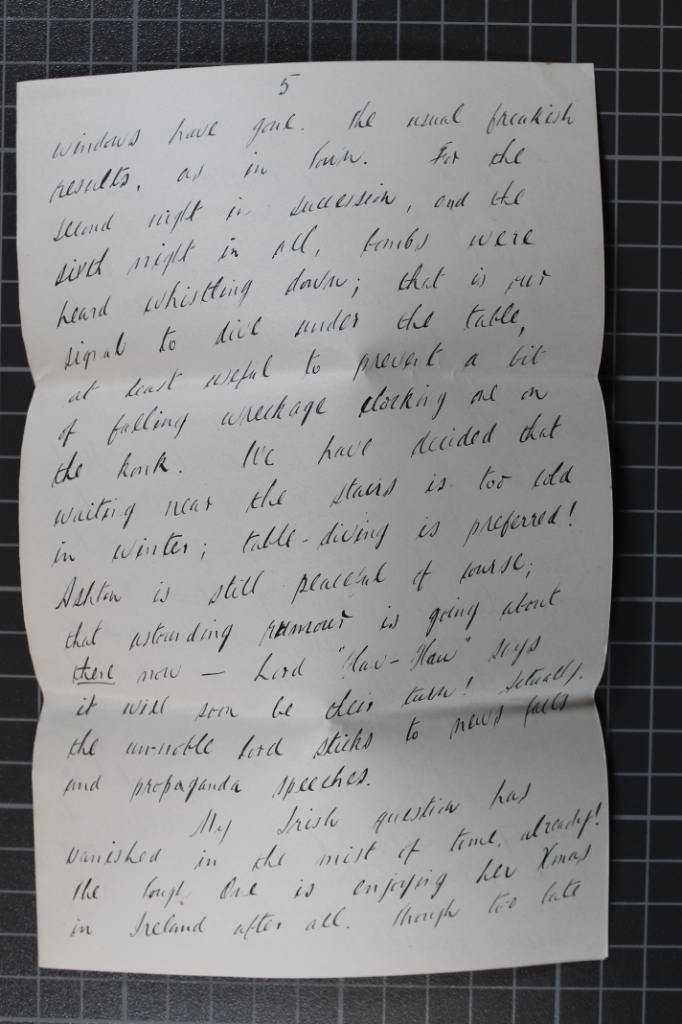 5
windows have gone. The usual freakish
results, as in Town. For the
second night in succession, and the
sixth night in all, bombs were
heard whistling down; that is our
signal to dive under the table,
at least useful to prevent a bit
of falling wreckage clocking one on
the konk. We have decided that
waiting near the stairs is too cold
in winter; table-diving is preferred!
Ashton is still peaceful of course;
that astounding rumour is going about
there now — Lord "Haw-Haw" says
it will soon be their turn! Actually,
the un-noble lord sticks to news facts
and propaganda speeches.
My Irish question has
vanished in the mist of time, already!
The Tough One is enjoying her Xmas
in Ireland after all. Though too late